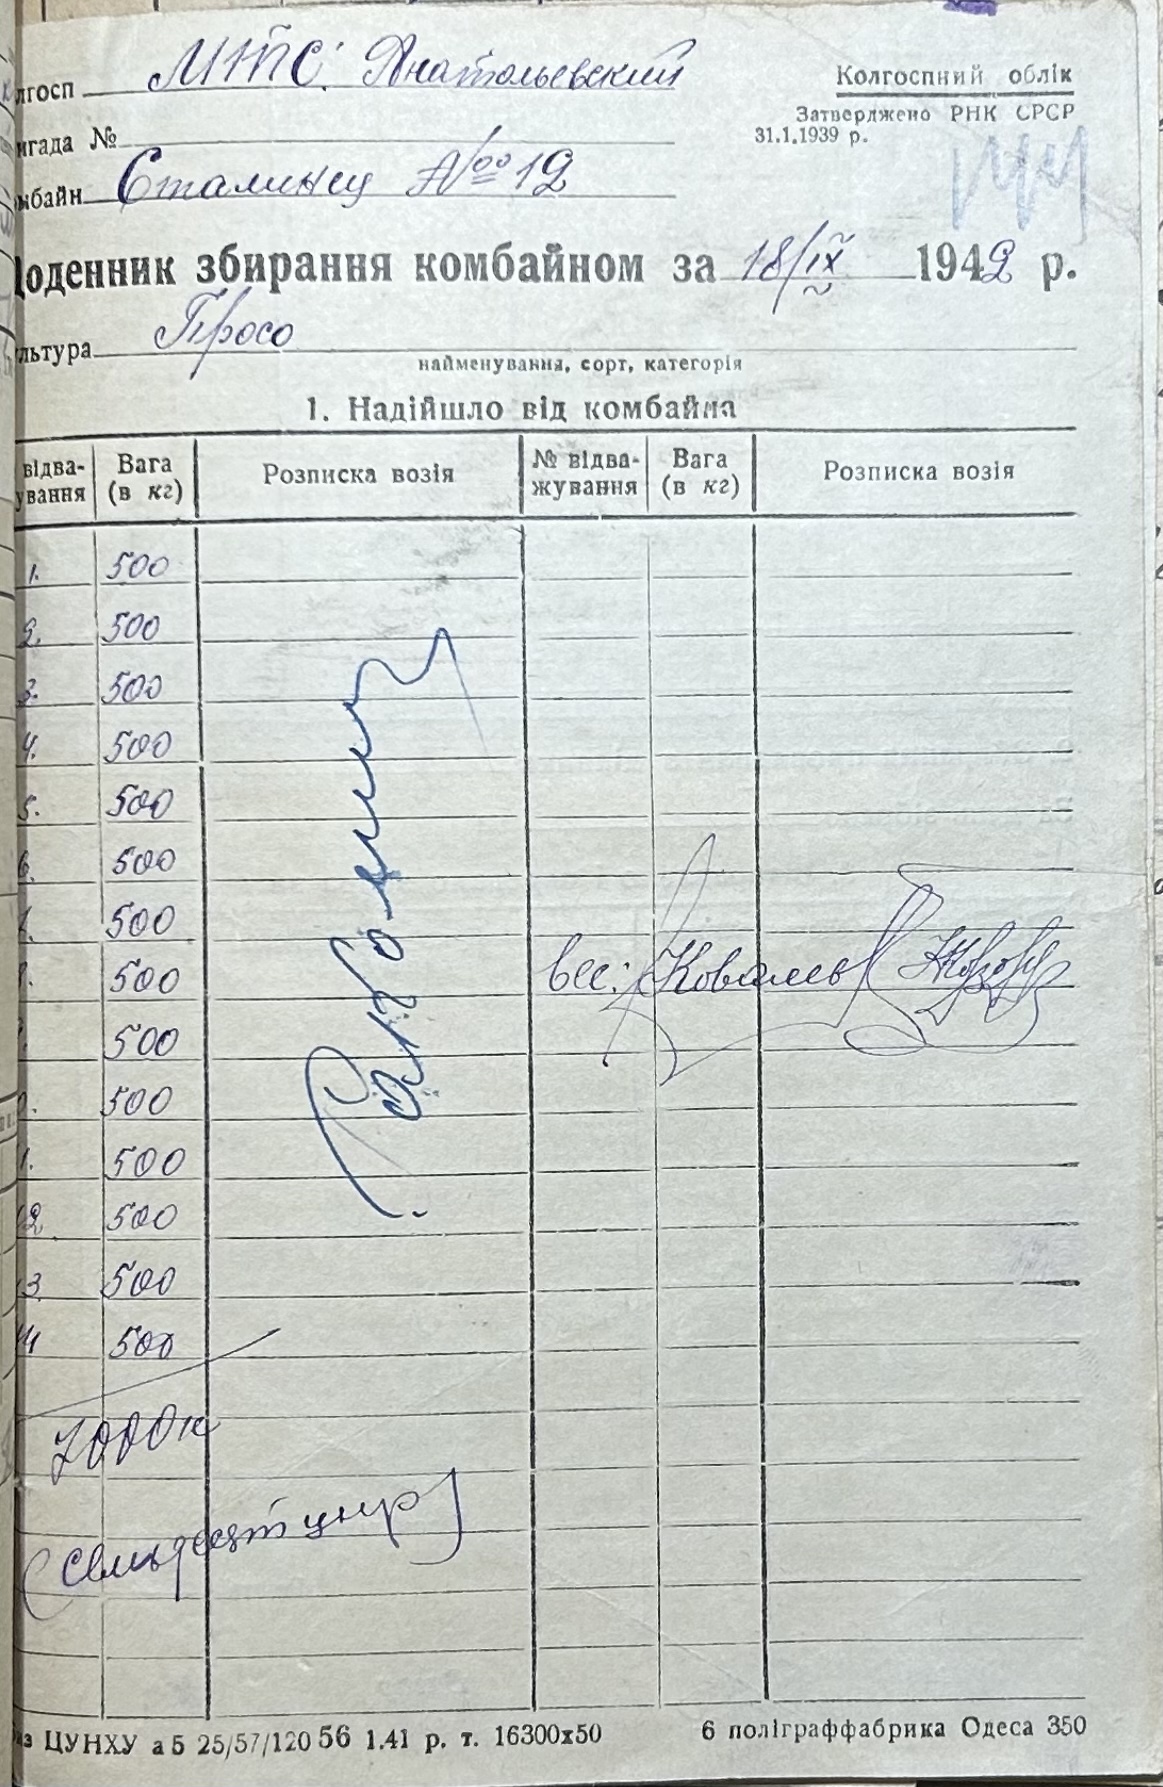 лгосп МТС Анатольевский
Колгоспний облік
Затверджено РНК СРСР
31.1.1939 р.
игада №
мбайн Сталинец № 12
Щоденник збирання комбайном за 18/IX 1942 р.
льтура Просо
найменування, сорт, категорія
1. Надійшло від комбайна
відва-
ування
Вага
(в кг)
Розписка возія
№ відва-
жування
Вага
(в кг)
Розписка возія
1. 500
2. 500
3. 500
4. 500
5. 500
6. 500
7. 500
8. 500
500
500
1. 500
12. 500
13 500
14 500
вес: Коваль
7000 к
(семьдесят цнтр)
аз ЦУНХУ а5 25/57/120 56 1.41 р. т. 16300х50
6 поліграффабрика Одеса 350